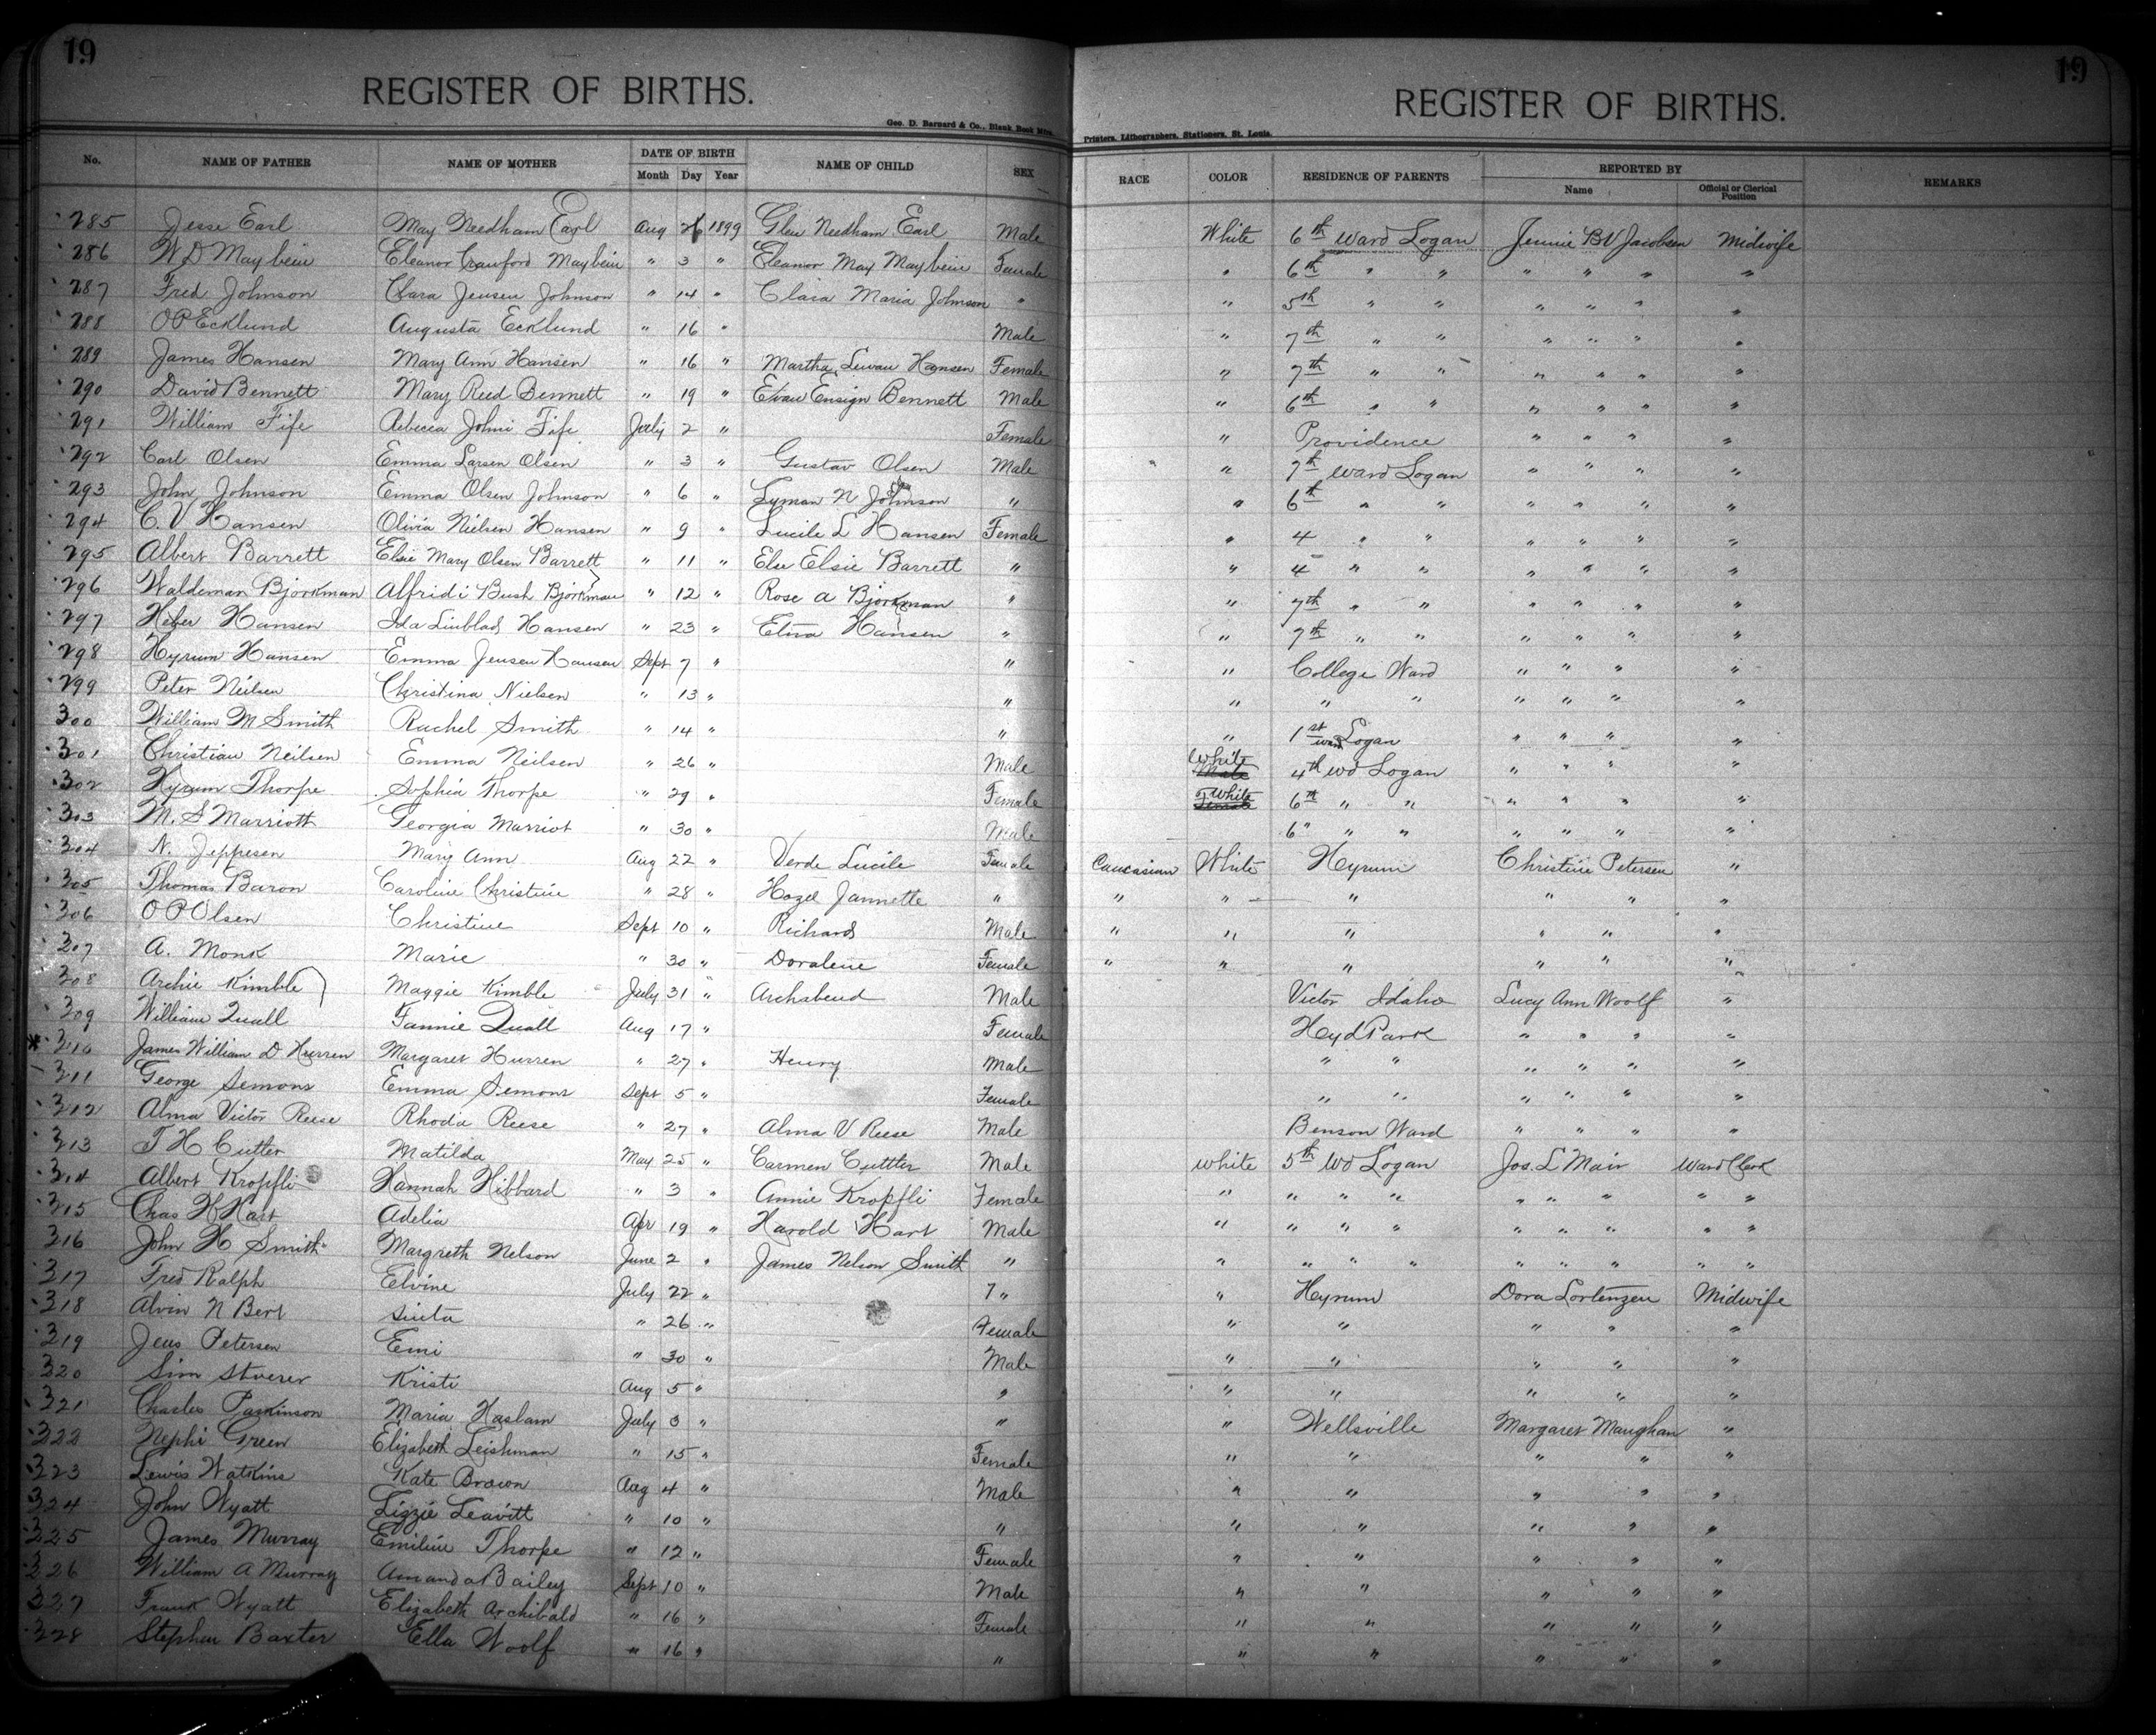 19
19
REGISTER OF BIRTHS.
REGISTER OF BIRTHS.
Geo. D. Barnard & Co., Blank Book Mfrs.
Printers, Lithographers, Stationers, St. Louis.
No. NAME OF FATHER NAME OF MOTHER DATE OF BIRTH Month Day Year NAME OF CHILD SEX RACE COLOR RESIDENCE OF PARENTS REPORTED BY Name Official or Clerical Position REMARKS
285 Jesse Earl May Needham Earl Aug 1899 Glen Needham Earl Male White 6th ward Logan Jennie BV Jacobsen Midwife
286 W D Maybein Eleanor Crawford Maybein " 3 " Eleanor May Maybein Female " 6th " " " " " "
287 Fred Johnson Clara Jensen Johnson " 14 " Clara Maria Johnson " " 5th " " " " " "
288 O P Ecklund Augusta Ecklund " 16 " Male " 7th " " " " " "
289 James Hansen Mary Ann Hansen " 16 " Martha Hansen Female " 7th " " " " " "
290 David Bennett Mary Reed Bennett " 19 " Evan Ensign Bennett Male " 6th " " " " " "
291 William Fife Rebecca Fife July 2 " Female " Providence " " " "
292 Carl Olsen Emma Larsen Olsen " 3 " Gustav Olsen Male " 7th ward Logan " " " "
293 John Johnson Emma Olsen Johnson " 6 " Lyman N Johnson " " 6th " " " " " "
294 C. V Hansen Olivia Nielsen Hansen " 9 " Lucile L Hansen Female " 4 " " " " " "
295 Albert Barrett Elsie Mary Olsen Barrett " 11 " Else Elsie Barrett " " 4 " " " " " "
296 Waldeman Bjorkman Alfridi Bush Bjorkman " 12 " Rose a Bjorkman " " 7th " " " " " "
297 Heber Hansen Ida Linblad Hansen " 23 " Hansen " " 7th " " " " " "
298 Hyrum Hansen Emma Jensen Hansen Sept 7 " " " College Ward " " " "
299 Peter Neilsen Christina Nielsen " 13 " " " " " " " " "
300 William M Smith Rachel Smith " 14 " " " 1st ward Logan " " " "
301 Christian Neilsen Emma Neilsen " 26 " Male White Male 4th wd Logan " " " "
302 Hyrum Thorpe Sophia Thorpe " 29 " Female White Female 6th " " " " " "
303 M. S Marriott Georgia Marriot " 30 " Male 6" " " " " " "
304 N. Jeppesen Mary Ann Aug 22 " Verde Lucile Female Caucasian White Hyrum Christine Petersen "
305 Thomas Baron Caroline Christine " 28 " Hazel Jannette " " " " " " "
306 O P Olsen Christine Sept 10 " Richard Male " " " " " "
307 A. Monk Marie " 30 " Doralene Female " " " " " "
308 Archie Kimble Maggie Kimble July 31 " Male Victor Idaho Lucy Ann Woolf "
309 William Quall Fannie Quall Aug 17 " Female Hyd Park " " " "
* 310 James William D Hurren Margaret Hurren " 27 " Henry Male " " " " " "
311 George Semons Emma Semons Sept 5 " Female " " " " " "
312 Alma Victor Reese Rhoda Reese " 27 " Alma V Reese Male Benson Ward " " " "
313 T H Cutter Matilda May 25 " Carmen Cuttter Male white 5th Wd Logan Jos. L Mair Ward Clerk
314 Albert Kropfli Hannah Hibbard " 3 " Annie Kropfli Female " " " " " " " " "
315 Chas H Hart Adelia Apr 19 " Harold Hart Male " " " " " " " " "
316 John H Smith Margreth Nelson June 2 " James Nelson Smith " " " " " " " " " "
317 Fred Ralph Elvine July 22 " " " Hyrum Dora Lortenzen Midwife
318 Alvin N Bert " 26 " Female " " " " "
319 Jens Petersen Emi " 30 " Male " " " " "
320 Sim Kristi Aug 5 " " " " " " "
321 Charles Parkinson Maria Haslam July 3 " " " Wellsville Margaret Maughan "
322 Nephi Green Elizabeth Leishman " 15 " Female " " " " "
323 Lewis Watkins Kate Brown Aug 4 " Male " " " " "
324 John Wyatt Lizzie Leavitt " 10 " " " " " " "
325 James Murray Emiline Thorpe " 12 " Female " " " " "
326 William A Murray Amanda Bailey Sept 10 " Male " " " " "
327 Frank Wyatt Elizabeth Archibald " 16 " Female " " " " "
328 Stephen Baxter Ella Woolf " 16 " " " " " " "